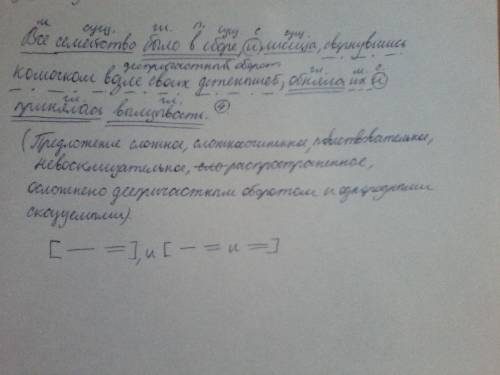 м. сущ. гл. п. сущ. с. сущ.
Всё семейство было в сборе, и лисица, свернувшись
деепричастный оборот гл. м. с.
комочком возле своих детенышей, обняла их и
гл. гл.
принялась вылизывать. ④
(Предложение сложное, сложносочиненное, повествовательное,
невосклицательное, распространенное,
осложнено деепричастным оборотом и однородными
сказуемыми)
[— =], и [— = и =]